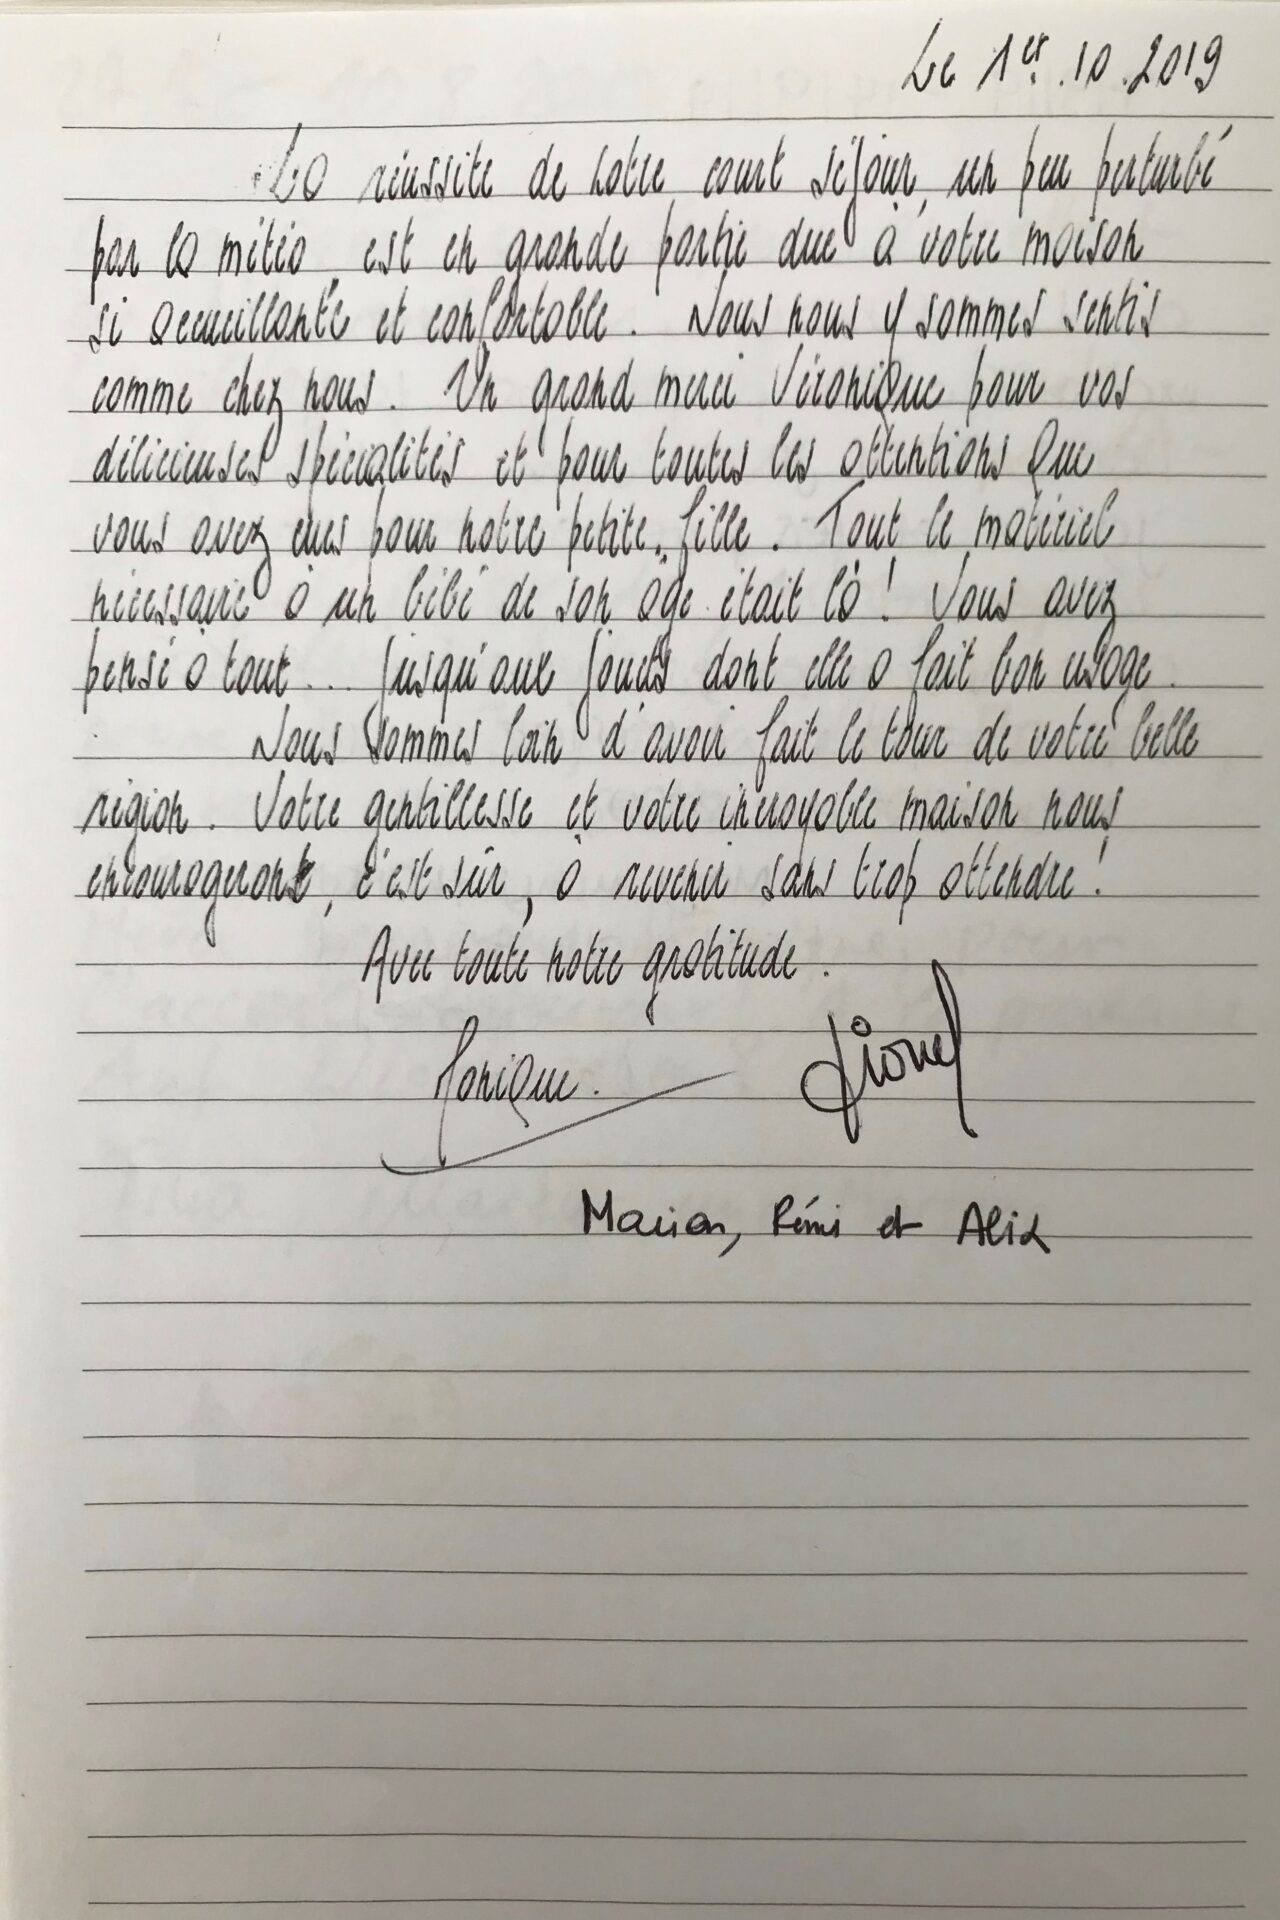 Le 1er.10.2019
La réussite de notre court séjour, un peu perturbé
par la météo, est en grande partie due à votre maison
si accueillante et confortable. Nous nous y sommes sentis
comme chez nous. Un grand merci Véronique pour vos
délicieuses spécialités et pour toutes les attentions que
vous avez eues pour notre petite-fille. Tout le matériel
nécessaire à un bébé de son âge était là ! Vous avez
pensé à tout... jusqu'aux jouets dont elle a fait bon usage.
Nous sommes loin d'avoir fait le tour de votre belle
région. Votre gentillesse et votre incroyable maison nous
encourageront, c'est sûr, à revenir sans trop attendre !
Avec toute notre gratitude.
Monique. Lionel
Marion, Rémi et Alix